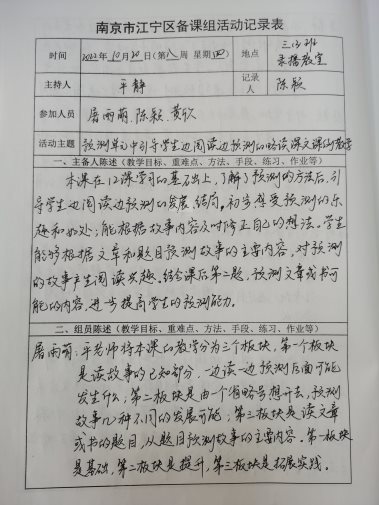 南京市江宁区备课组活动记录表
时间 2022年10月20日(第八周 星期四) 地点 三(3)班录播教室
主持人 平静 记录人 陈颖
参加人员 屠雨萌、陈颖、黄欣
活动主题 预测单元中引导学生边阅读边预测的略读课文课例教学
一、主备人陈述(教学目标、重难点、方法、手段、练习、作业等)
本课在12课学习的基础上,了解了预测的方法后,引
导学生边阅读边预测的发展、结局。初步感受预测的乐
趣和妙处;能根据故事内容及时修正自己的想法。学生
能够根据文章和题目预测故事的主要内容,对预测
的故事产生阅读兴趣。结合课后第二题,预测文章或书可
能的内容,进步提高学生的预测能力。
二、组员陈述(教学目标、重难点、方法、手段、练习、作业等)
屠雨萌:平老师将本课的教学分为三个板块,第一个板块
是读故事的已知部分,一边读一边预测后面可能
发生什么;第二板块是由一个省略号想开去,预测
故事几种不同的发展可能;第三板块是读文章
或书的题目,从题目预测故事的主要内容。第一板块
是基础,第二板块是提升,第三板块是拓展实践。